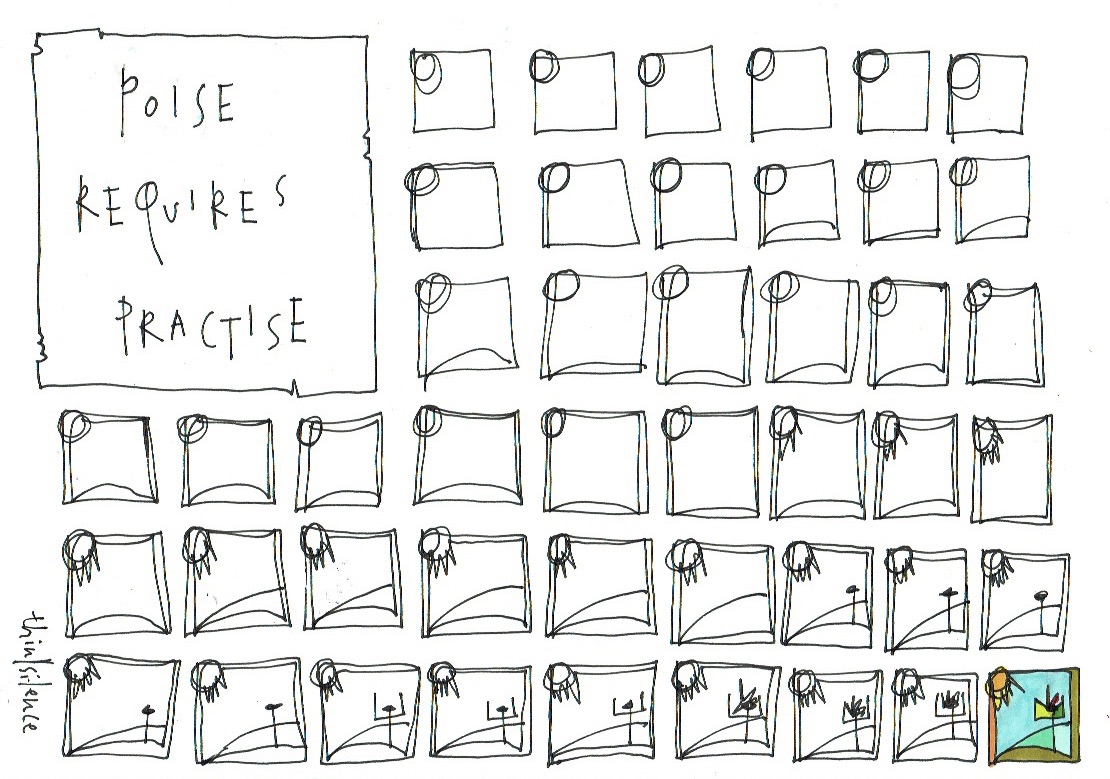 POISE
REQUIRES
PRACTISE
thin|silence